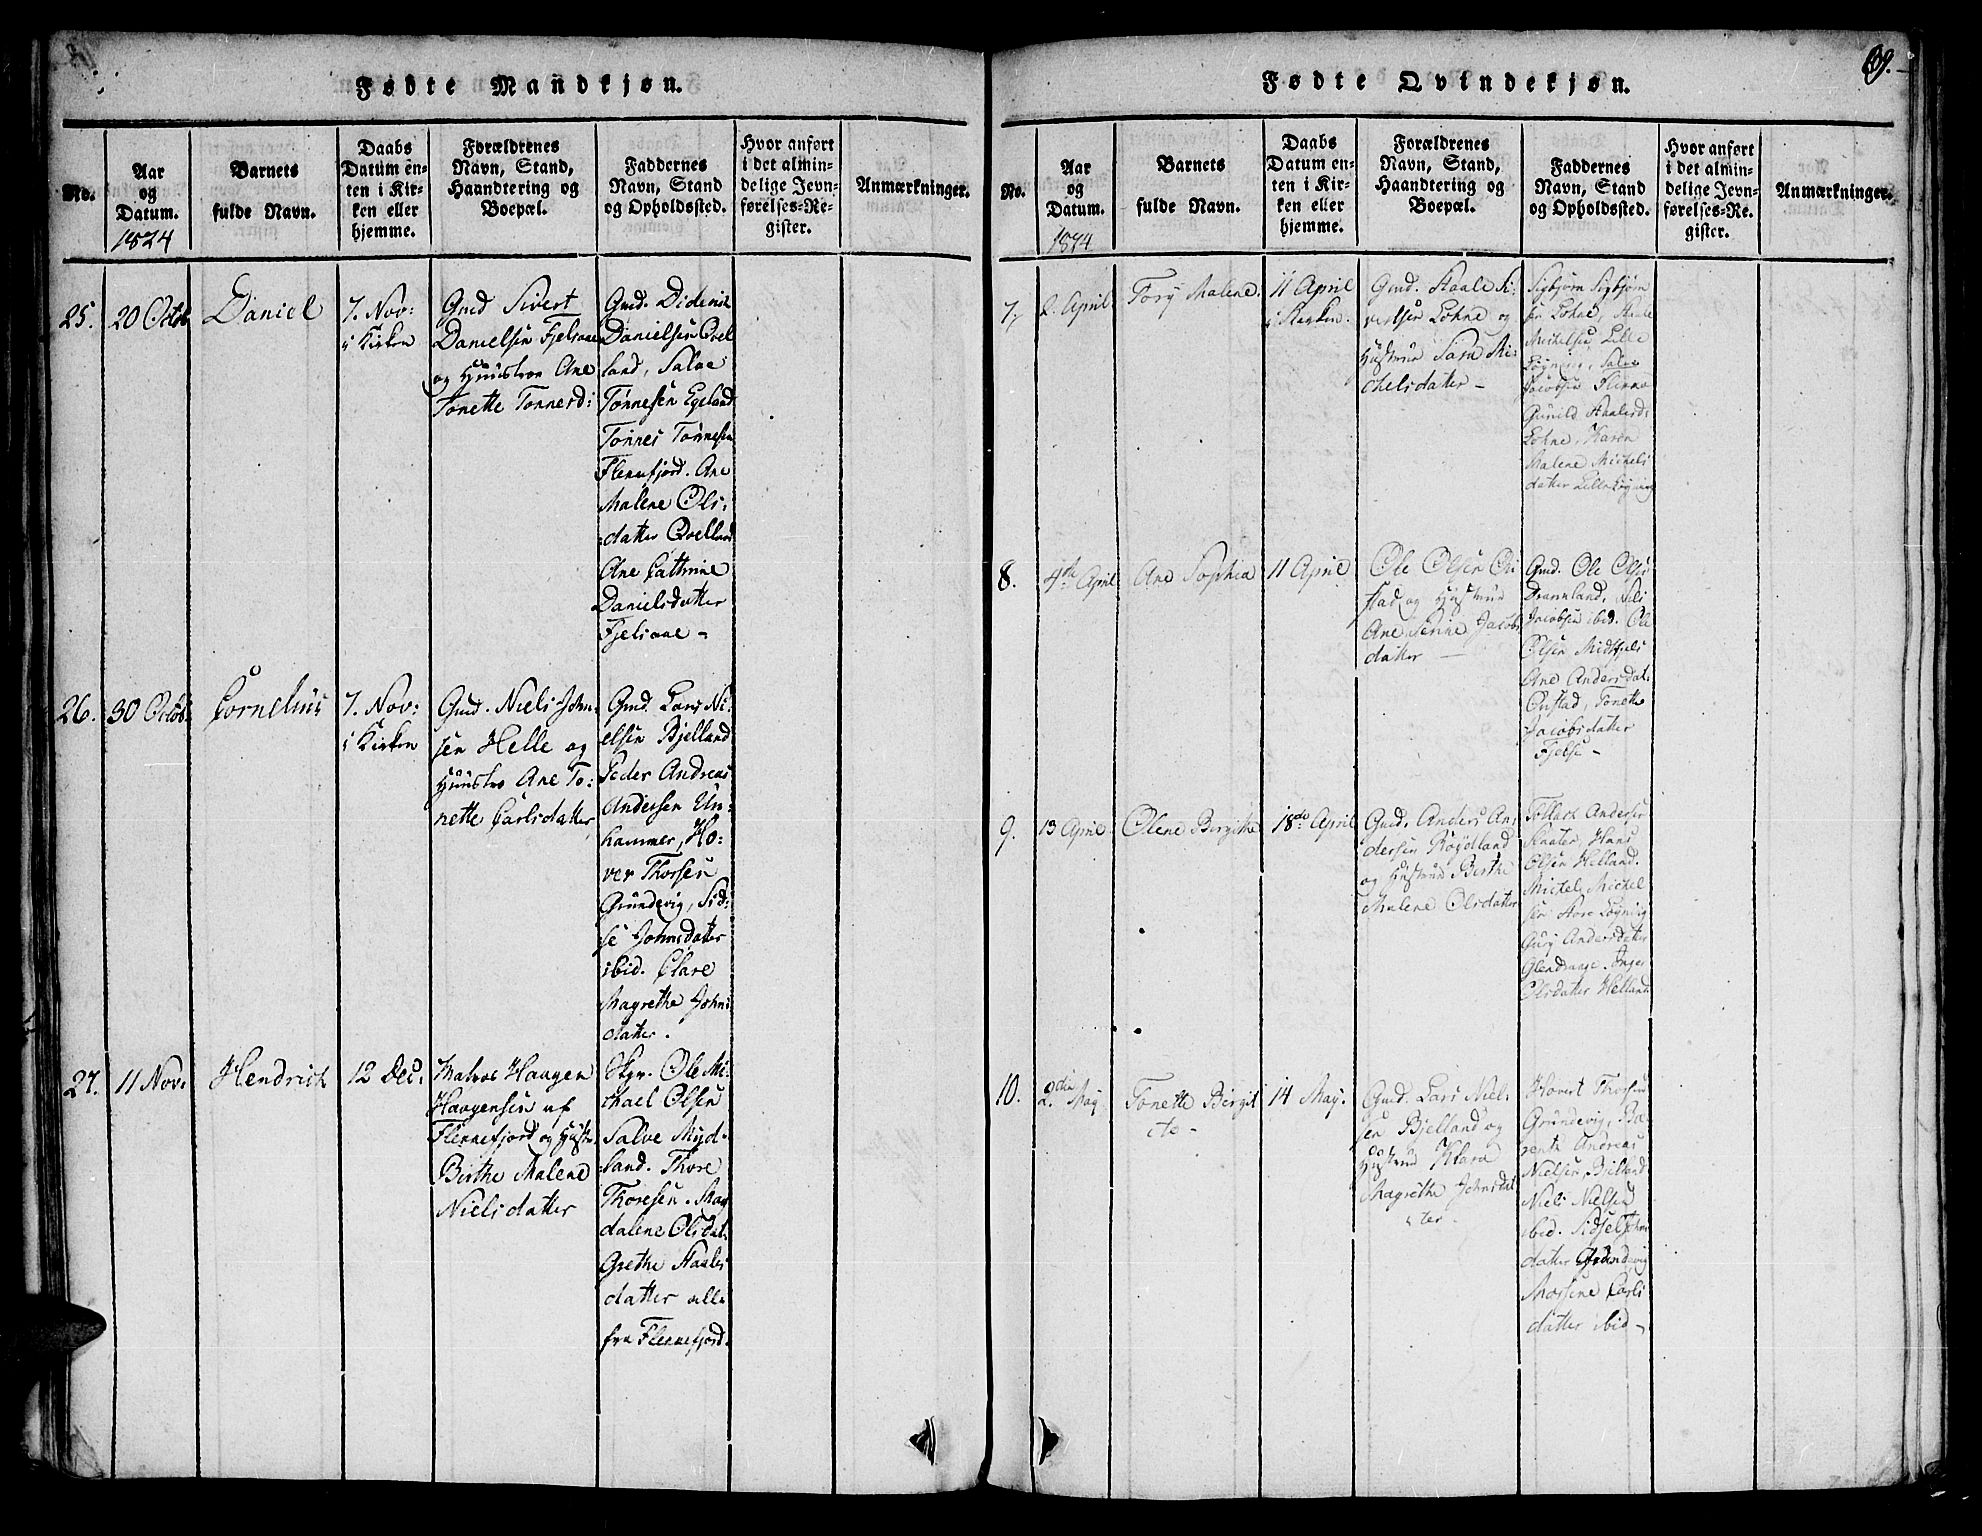 Fødte Mandkjøn.
No.
Aar
og
Datum.
1824
Barnets
fulde Navn.
Daabs
Datum en-
ten i Kir-
ken eller
hjemme.
Forældrenes
Navn, Stand,
Haandtering og
Boepæl.
Faddernes
Navn, Stand
og Opholdssted.
Hvor anført
i det almin-
delige Jevn-
førelses-Re-
gister.
Anmærkninger.
25.
20 Octob
Daniel
7. Nov:
i Kirken
Gmd Sivert
Danielsen Fjelsaae
og Huustroe Ane
Tonette Tonnesd:
Gmd. Diderich
Danielsen Qvel
land, Salve
Tønnesen Egeland
Tønnes Tønnesen
Flennefjord. Ane
Malene Ols:
datter Qvelland
Ane Cathrine
Danielsdatter
Fjelsaae -
26.
30 Octob:
Cornelius
7. Nov:
i Kirken
Gmd. Niels John,
sen Helle og
Huustro Ane To:
nette Carlsdatter,
Gmd. Lars Ni:
elsen Bjelland
Peder Andreas
Andersen Un,
hammer, Ho:
ver Thorsen
Grundevig, Sid:
se Johnsdatter
ibid. Clare
Magrethe Johns
datter.
27.
11 Nov:
Hendrich
12 Dec:
Matros Haagen
Haagensen af
Flennefjord og Hustr.
Birthe Malene
Nielsdatter
Skpr. Ole Mi:
chael Olsen
Salve Myd,
land. Thore
Thoresen. Mag
dalene Olsdat.
Grethe Staales
datter alle
fra Flennefjord.
Fødte Qvindekjøn.
69.
No.
Aar
og
Datum.
1824
Barnets
fulde Navn.
Daabs
Datum en-
ten i Kir-
ken eller
hjemme.
Forældrenes
Navn, Stand,
Haandtering og
Boepæl.
Faddernes
Navn, Stand
og Opholdssted.
Hvor anført
i det almin-
delige Jevn-
førelses-Re.
gister.
Anmærkninger.
7,
2. April
Tory Malene.
11 April
i Kirken.
Gmd. Staale Si:
vertsen Lohne og
Hustrue Sara Mi:
chelsdatter -
Sigbjørn Sigbjørn
sen Lohne, Staale
Michelsen Lille
Løgning, Salve
Jacobsen
Gunild Staalesd:
Lohne, Karen
Malene Michels
datter Lille Løgning
8.
4de April
Ane Sophia
11 April
Ole Olsen On
stad og Hustrue
Ane Serine Jacobs
datter -
Gmd. Ole Olsen
Drannland, Nils
Jacobsen ibid. Ole
Olsen Midtfjels
Ane Andersdat.
Onstad, Tonette
Jacobsdatter
Fjelse -
9.
13 April
Olene Birgithe
18de April
Gmd. Anders An,
dersen Røydland
og Hustrue Birthe
Malene Olsdatter
Tollack Andersen
Staater, Hans
Olsen Helland.
Michel Michel
sen Store Løgning
Gury Andersdatter
Glendrange. Inger
Olsdatter Helland
10.
2den May
Tonette Birgit
cte -
14 May.
Gmd. Lars Niel.
sen Bjelland og
Hustrue Klara
Magrethe Johnsdat
ter -
Hovert Thorsen
Grundevig,
Andreas
Nielsen Bjelland
Niels Nielsen
ibid. Sidsel Johns
datter Grundevig
Massine Carls
datter ibid -